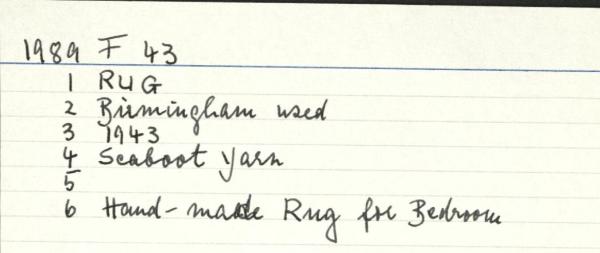 1989 F 43
1 RUG
2 Birmingham used
3 1943
4 Seaboot yarn
5
6 Hand-made Rug for Bedroom